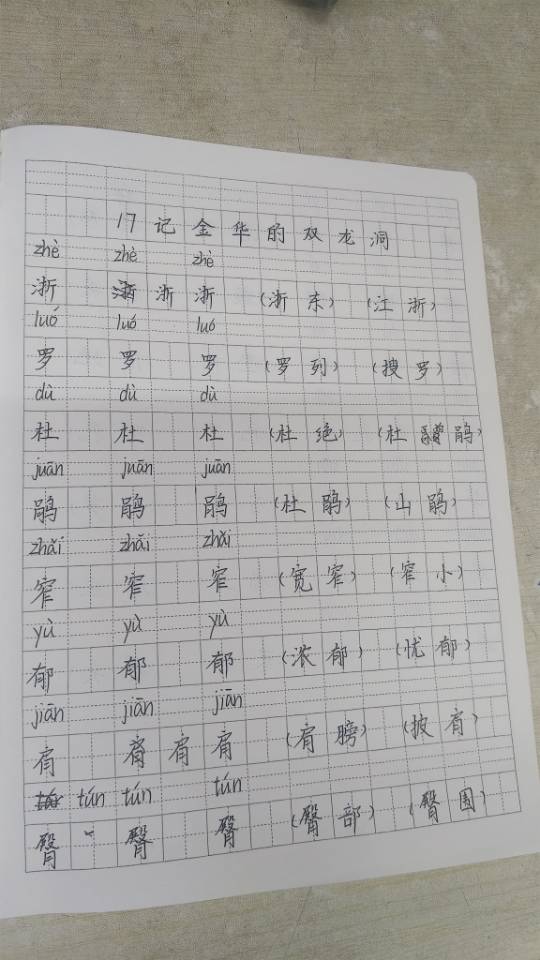 17 记金华的双龙洞
zhè zhè zhè
浙 浙 浙 (浙东) (江浙)
luó luó luó
罗 罗 罗 (罗列) (搜罗)
dù dù dù
杜 杜 杜 (杜绝) (杜鹃)
juān juān juān
鹃 鹃 鹃 (杜鹃) (山鹃)
zhǎi zhǎi zhǎi
窄 窄 窄 (宽窄) (窄小)
yù yù yù
郁 郁 郁 (浓郁) (忧郁)
jiān jiān jiān
肩 肩 肩 肩 (肩膀) (披肩)
tún tún tún
臀 臀 臀 (臀部) (臀围)